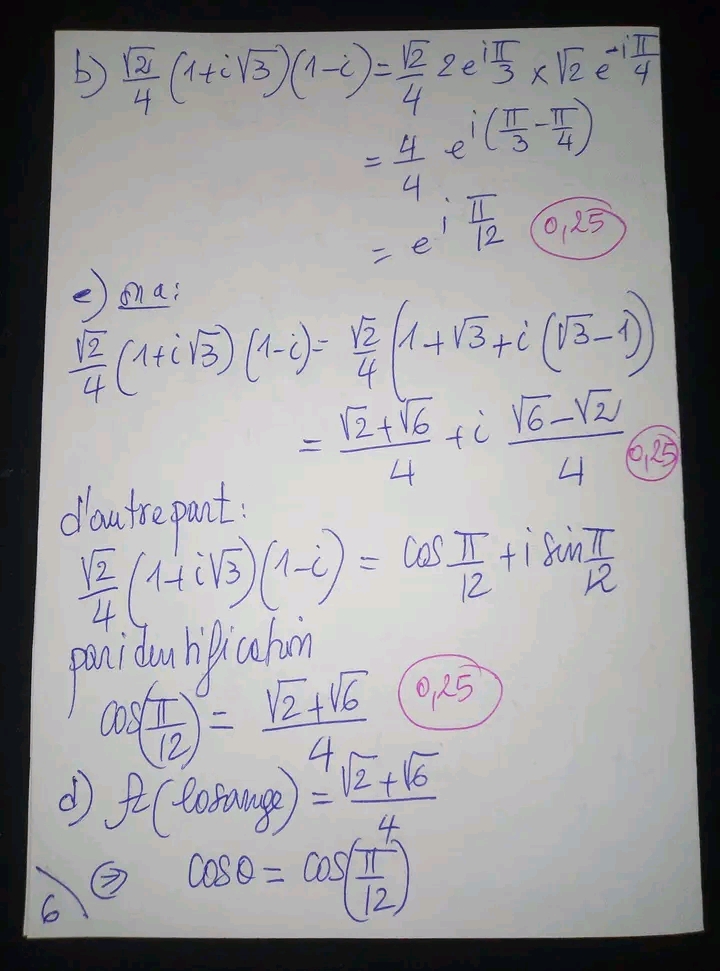 b) √2/4 (1+i√3)(1-i) = √2/4 2e^{iπ/3} × √2 e^{-iπ/4}
= 4/4 e^{i(π/3 - π/4)}
= e^{iπ/12} 0,25
c) on a:
√2/4 (1+i√3)(1-i) = √2/4 (1+√3+i(√3-1))
= (√2+√6)/4 + i (√6-√2)/4 0,25
d'autre part:
√2/4 (1+i√3)(1-i) = cos π/12 + i sin π/12
par identification
cos(π/12) = (√2+√6)/4 0,25
d) A(losange) = (√2+√6)/4
⇔ cosθ = cos(π/12)
6